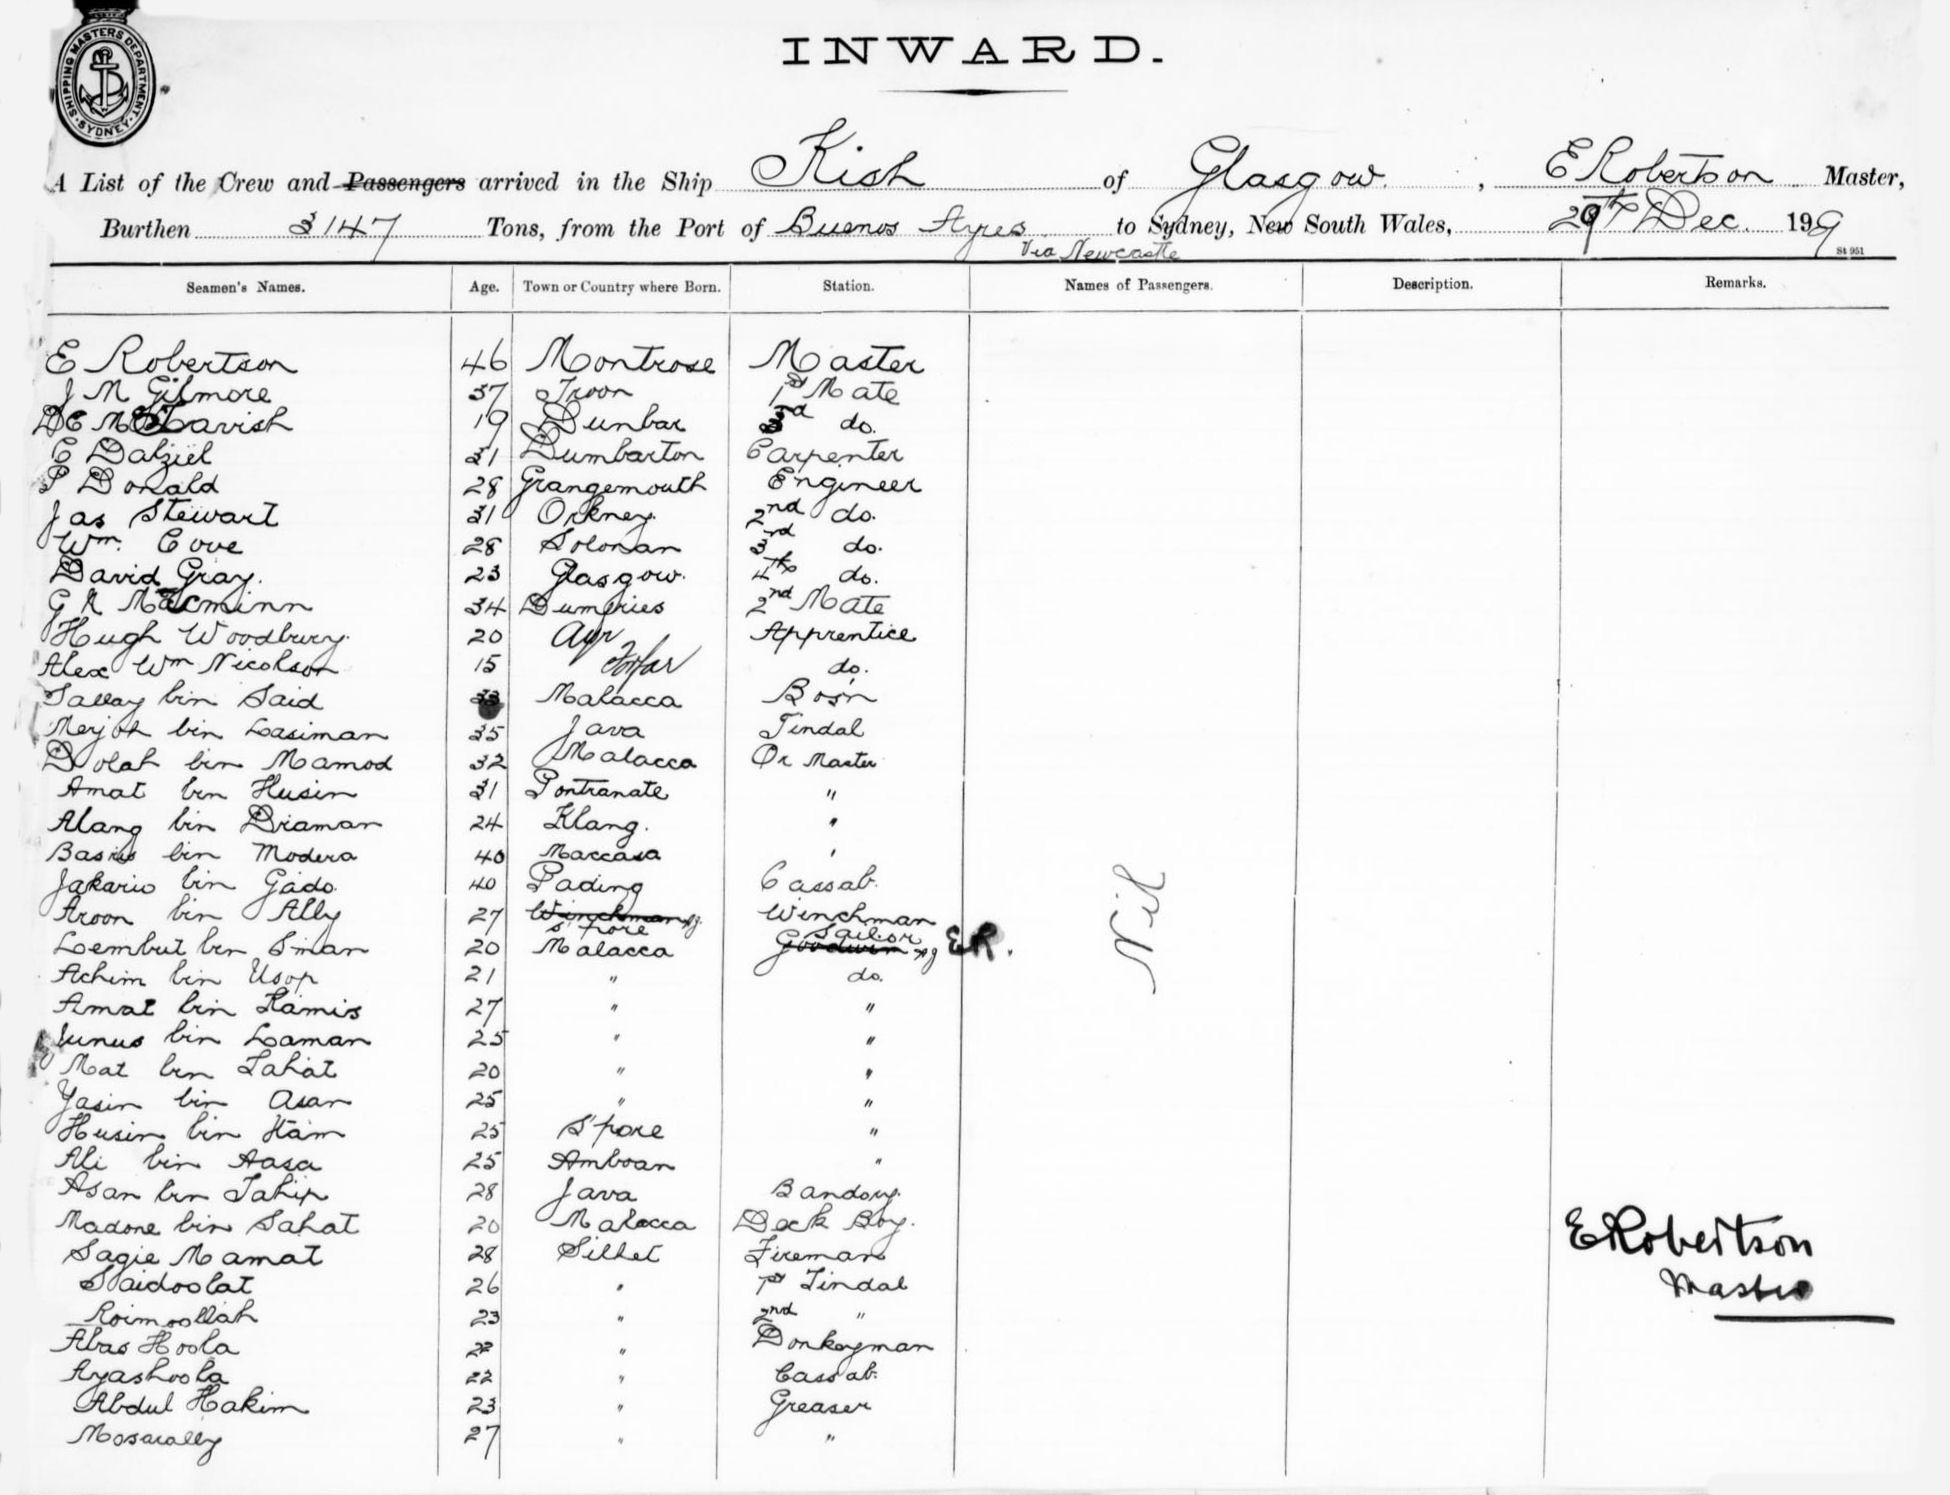 SHIPPING MASTERS DEPARTMENT. SYDNEY.
INWARD.
A List of the Crew and Passengers arrived in the Ship Kish of Glasgow. , E Robertson Master,
Burthen 3147 Tons, from the Port of Buenos Ayres to Sydney, New South Wales, 29th Dec. 199
Via Newcastle
St 951
Seamen's Names. Age. Town or Country where Born. Station. Names of Passengers. Description. Remarks.
E Robertson 46 Montrose Master
J M Gilmore 37 Troon 1st Mate
D E McTavish 19 Dunbar 3rd do.
C Dalziel 31 Dumbarton Carpenter
P Donald 28 Grangemouth Engineer
Jas Stewart 31 Orkney. 2nd do.
Wm. Cove 28 Solonan 3rd do.
David Gray. 23 Glasgow. 4th do.
G R McMinn 34 Dumfries 2nd Mate
Hugh Woodbury. 20 Ayr Apprentice
Alex Wm Nicolson 15 Forfar do.
Sallay bin Said 33 Malacca Bosn
Merjoh bin Lasiman 35 Java Tindal
Dolah bin Mamod 32 Malacca Qr Master
Amat bin Husin 31 Pontranate "
Alang bin Draman 24 Klang. "
bin Modera 40 Maccasa "
Jakario bin Gado. 40 Pading Cassab.
Aroon bin Ally 27 Winchman S'pore Winchman
Lembut bin Sman 20 Malacca Goodwin Sailor ER.
Achim bin Usop 21 " do.
Amat bin Kamis 27 " "
Junus bin Laman 25 " "
Mat bin Lahat 20 " "
Yasin bin Asan 25 " "
Husin bin Itam 25 S'pore "
Ali bin Aasa 25 Amboan "
Asan bin Tahip 28 Java Bandoy.
Madone bin Sahat 20 Malacca Deck Boy.
Sagie Mamat 28 Silhet Fireman
Saidoolat 26 " 1st Tindal
Roimoollah 23 " 2nd "
Abas Hoola " Donkeyman
Ayashoola 22 " Cassab.
Abdul Hakim 23 " Greaser
Mosarally 27 " "
Nil
E Robertson
Master